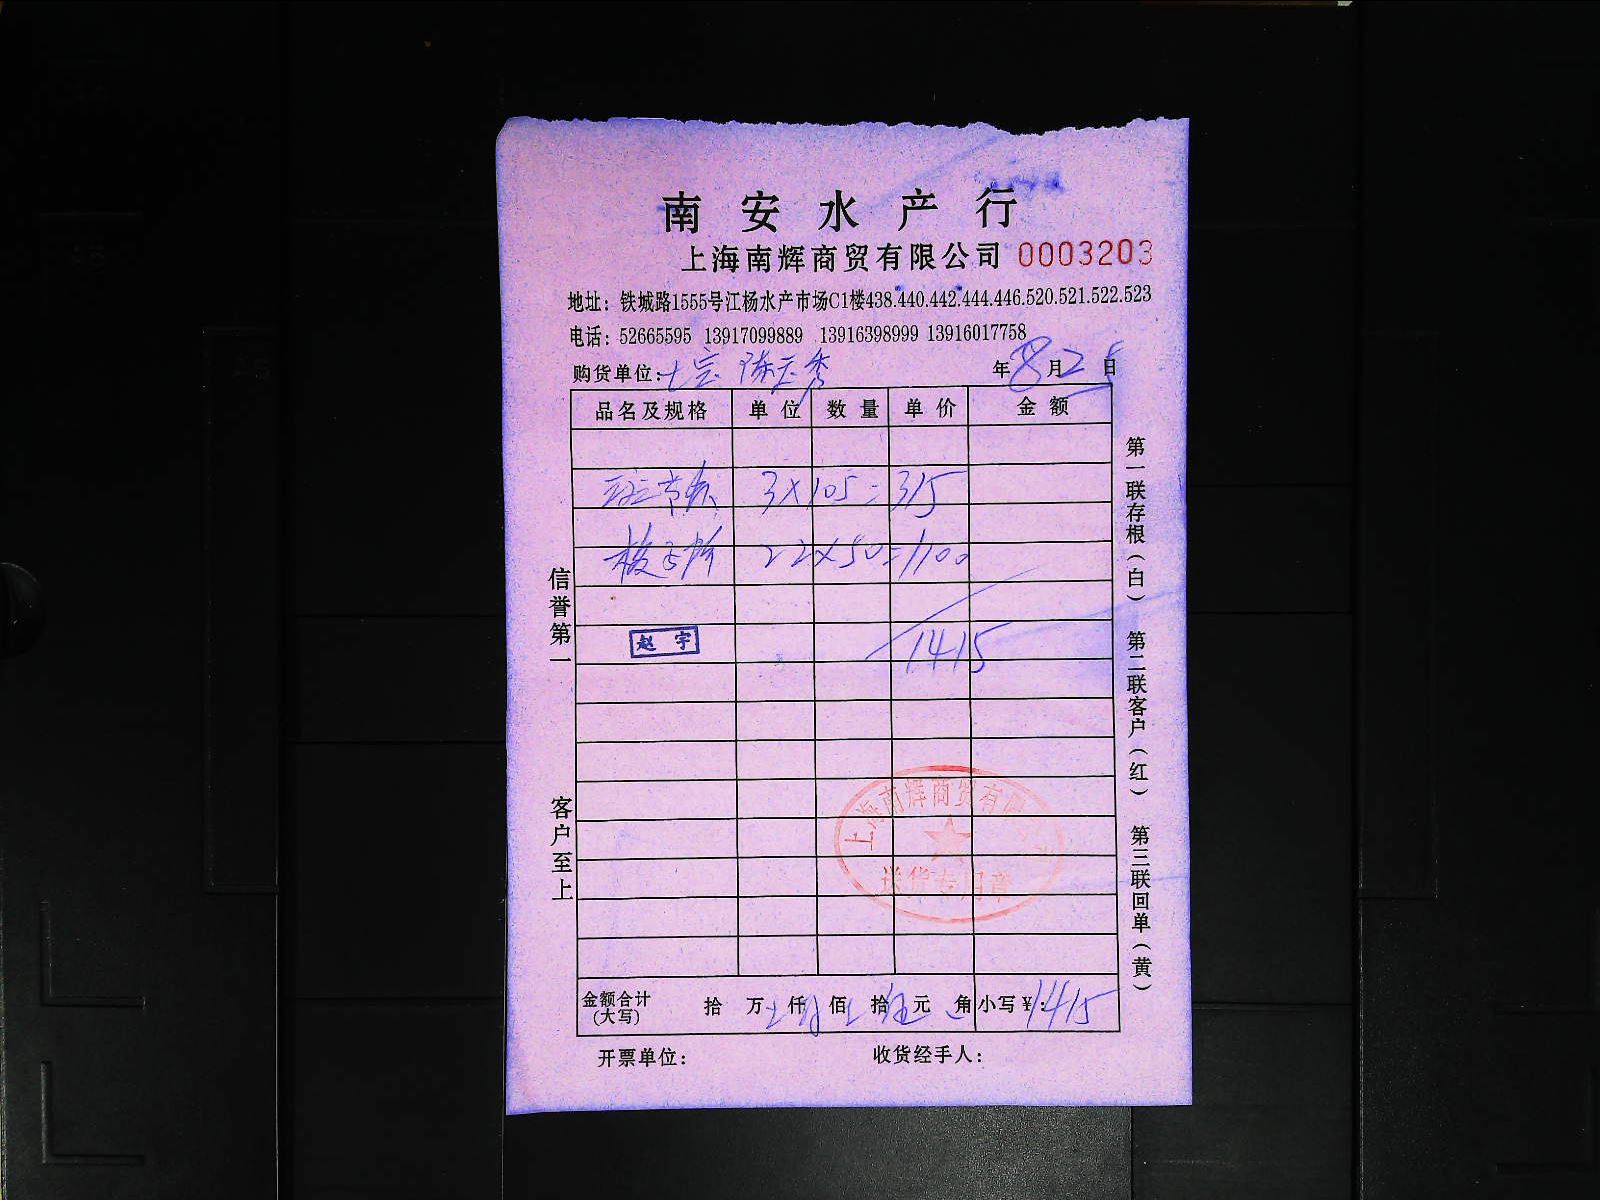 南安水产行
上海南辉商贸有限公司 0003203
地址：铁城路1555号江杨水产市场C1楼438.440.442.444.446.520.521.522.523
电话：52665595 13917099889 13916398999 13916017758
购货单位： 陈玉秀 年8月25日
品名及规格 单位 数量 单价 金额
3×105=315
梭子蟹 22×50=1100
赵宇
1415
上海南辉商贸有限公司
送货专用章
金额合计(大写) 拾 万 仟 佰 拾 元 角 小写¥：1415
开票单位： 收货经手人：
信誉第一 客户至上
第一联存根（白） 第二联客户（红） 第三联回单（黄）